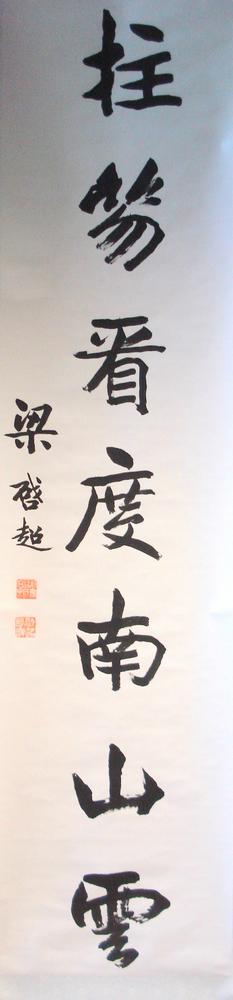 拄笏看度南山雲
梁啓超